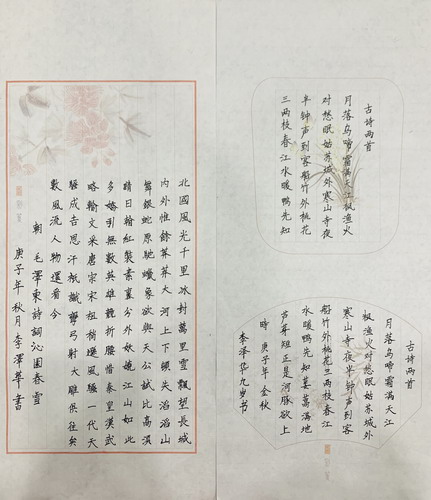 古诗两首
月落乌啼霜满天江枫渔火
对愁眠姑苏城外寒山寺夜
半钟声到客船竹外桃花
三两枝春江水暖鸭先知
古诗两首
月落乌啼霜满天江
枫渔火对愁眠姑苏城外
寒山寺夜半钟声到客
船竹外桃花三两枝春江
水暖鸭先知蒌蒿满地
芦芽短正是河豚欲上
时 庚子年金秋
李泽华九岁书
北國風光千里冰封萬里雪飄望長城
內外惟餘莽莽大河上下頓失滔滔山
舞銀蛇原馳蠟象欲與天公試比高須
晴日看紅裝素裹分外妖嬈江山如此
多嬌引無數英雄競折腰惜秦皇漢武
略輸文采唐宗宋祖稍遜風騷一代天
驕成吉思汗祇識彎弓射大雕俱往矣
數風流人物還看今
朝 毛澤東詩詞沁園春雪
庚子年秋月李澤華書